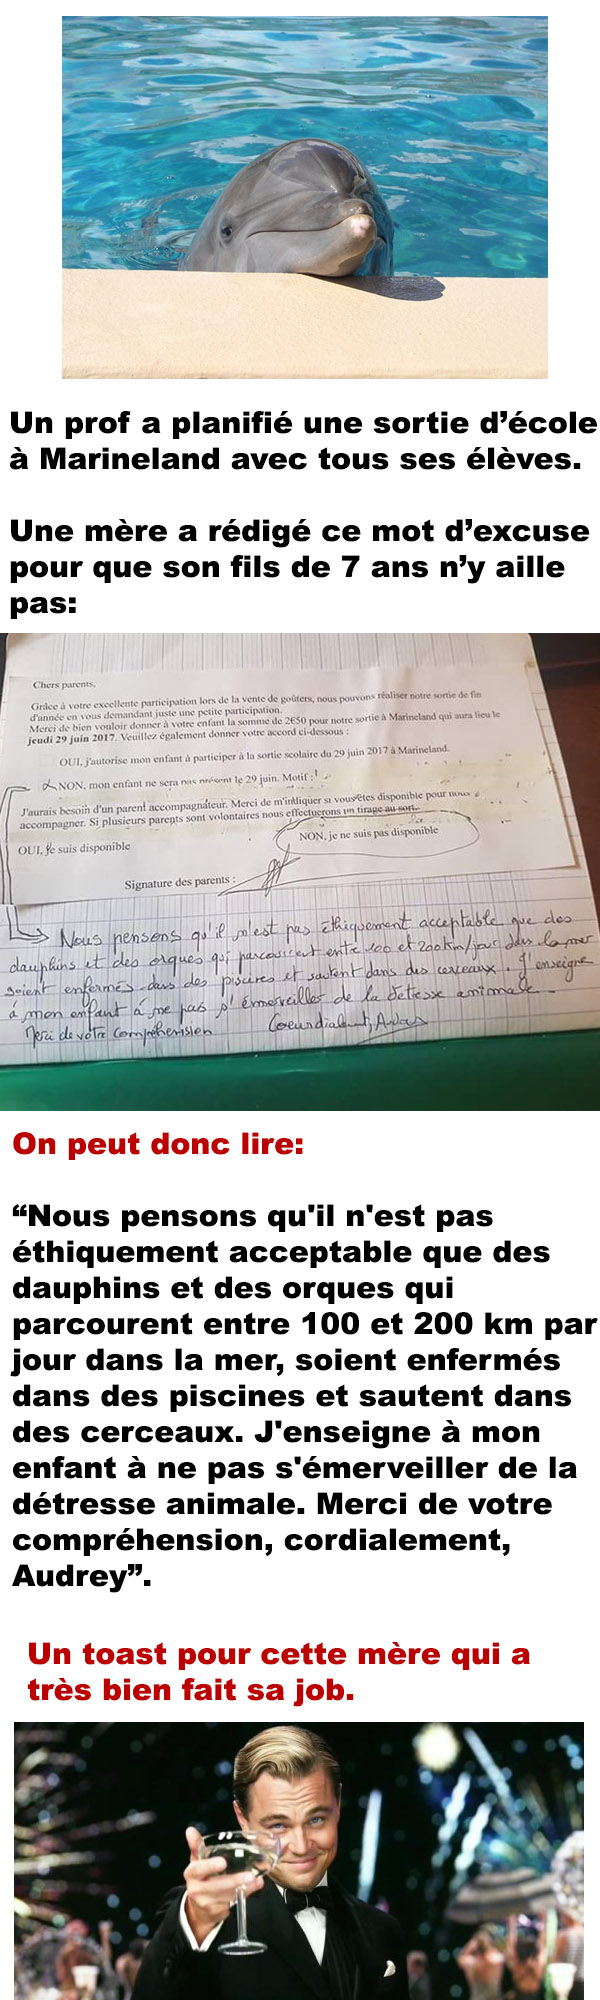 Un prof a planifié une sortie d’école
à Marineland avec tous ses élèves.
Une mère a rédigé ce mot d’excuse
pour que son fils de 7 ans n’y aille
pas:
Chers parents,
Grâce à votre excellente participation lors de la vente de goûters, nous pouvons réaliser notre sortie de fin
d'année en vous demandant juste une petite participation.
Merci de bien vouloir donner à votre enfant la somme de 2€50 pour notre sortie à Marineland qui aura lieu le
jeudi 29 juin 2017. Veuillez également donner votre accord ci-dessous :
OUI, j'autorise mon enfant à participer à la sortie scolaire du 29 juin 2017 à Marineland.
NON, mon enfant ne sera pas présent le 29 juin. Motif :
J'aurais besoin d'un parent accompagnateur. Merci de m'indiquer si vous êtes disponible pour nous
accompagner. Si plusieurs parents sont volontaires nous effectuerons un tirage au sort.
OUI, je suis disponible
NON, je ne suis pas disponible
Signature des parents :
Nous pensons qu'il n'est pas éthiquement acceptable que des
dauphins et des orques qui parcourent entre 100 et 200km/jour dans la mer
soient enfermés dans des piscines et sautent dans des cerceaux. J'enseigne
à mon enfant à ne pas s'émerveiller de la détresse animale.
Merci de votre compréhension
On peut donc lire:
“Nous pensons qu'il n'est pas
éthiquement acceptable que des
dauphins et des orques qui
parcourent entre 100 et 200 km par
jour dans la mer, soient enfermés
dans des piscines et sautent dans
des cerceaux. J'enseigne à mon
enfant à ne pas s'émerveiller de la
détresse animale. Merci de votre
compréhension, cordialement,
Audrey”.
Un toast pour cette mère qui a
très bien fait sa job.